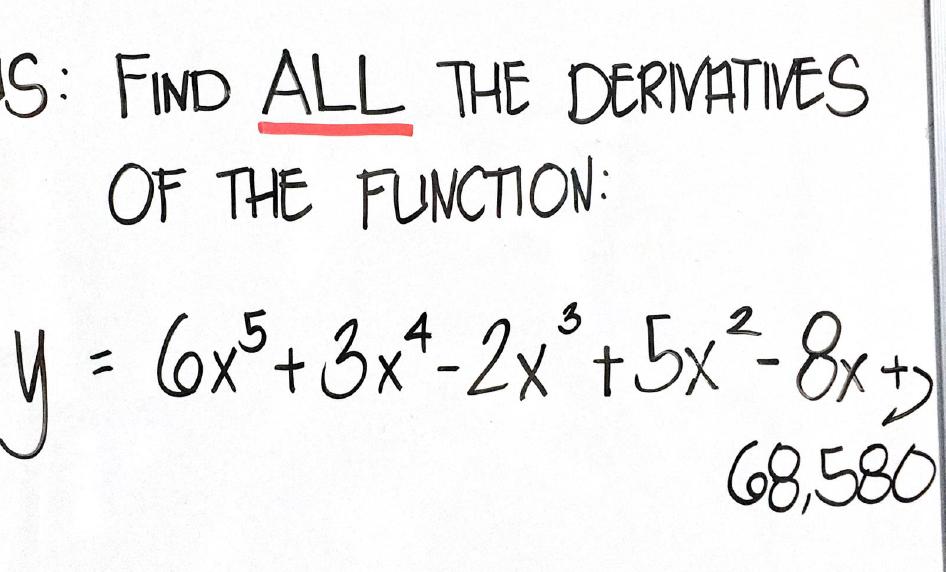 S: FIND ALL THE DERIVATIVES
OF THE FUNCTION:
y = 6x⁵ + 3x⁴ - 2x³ + 5x² - 8x +
68,580